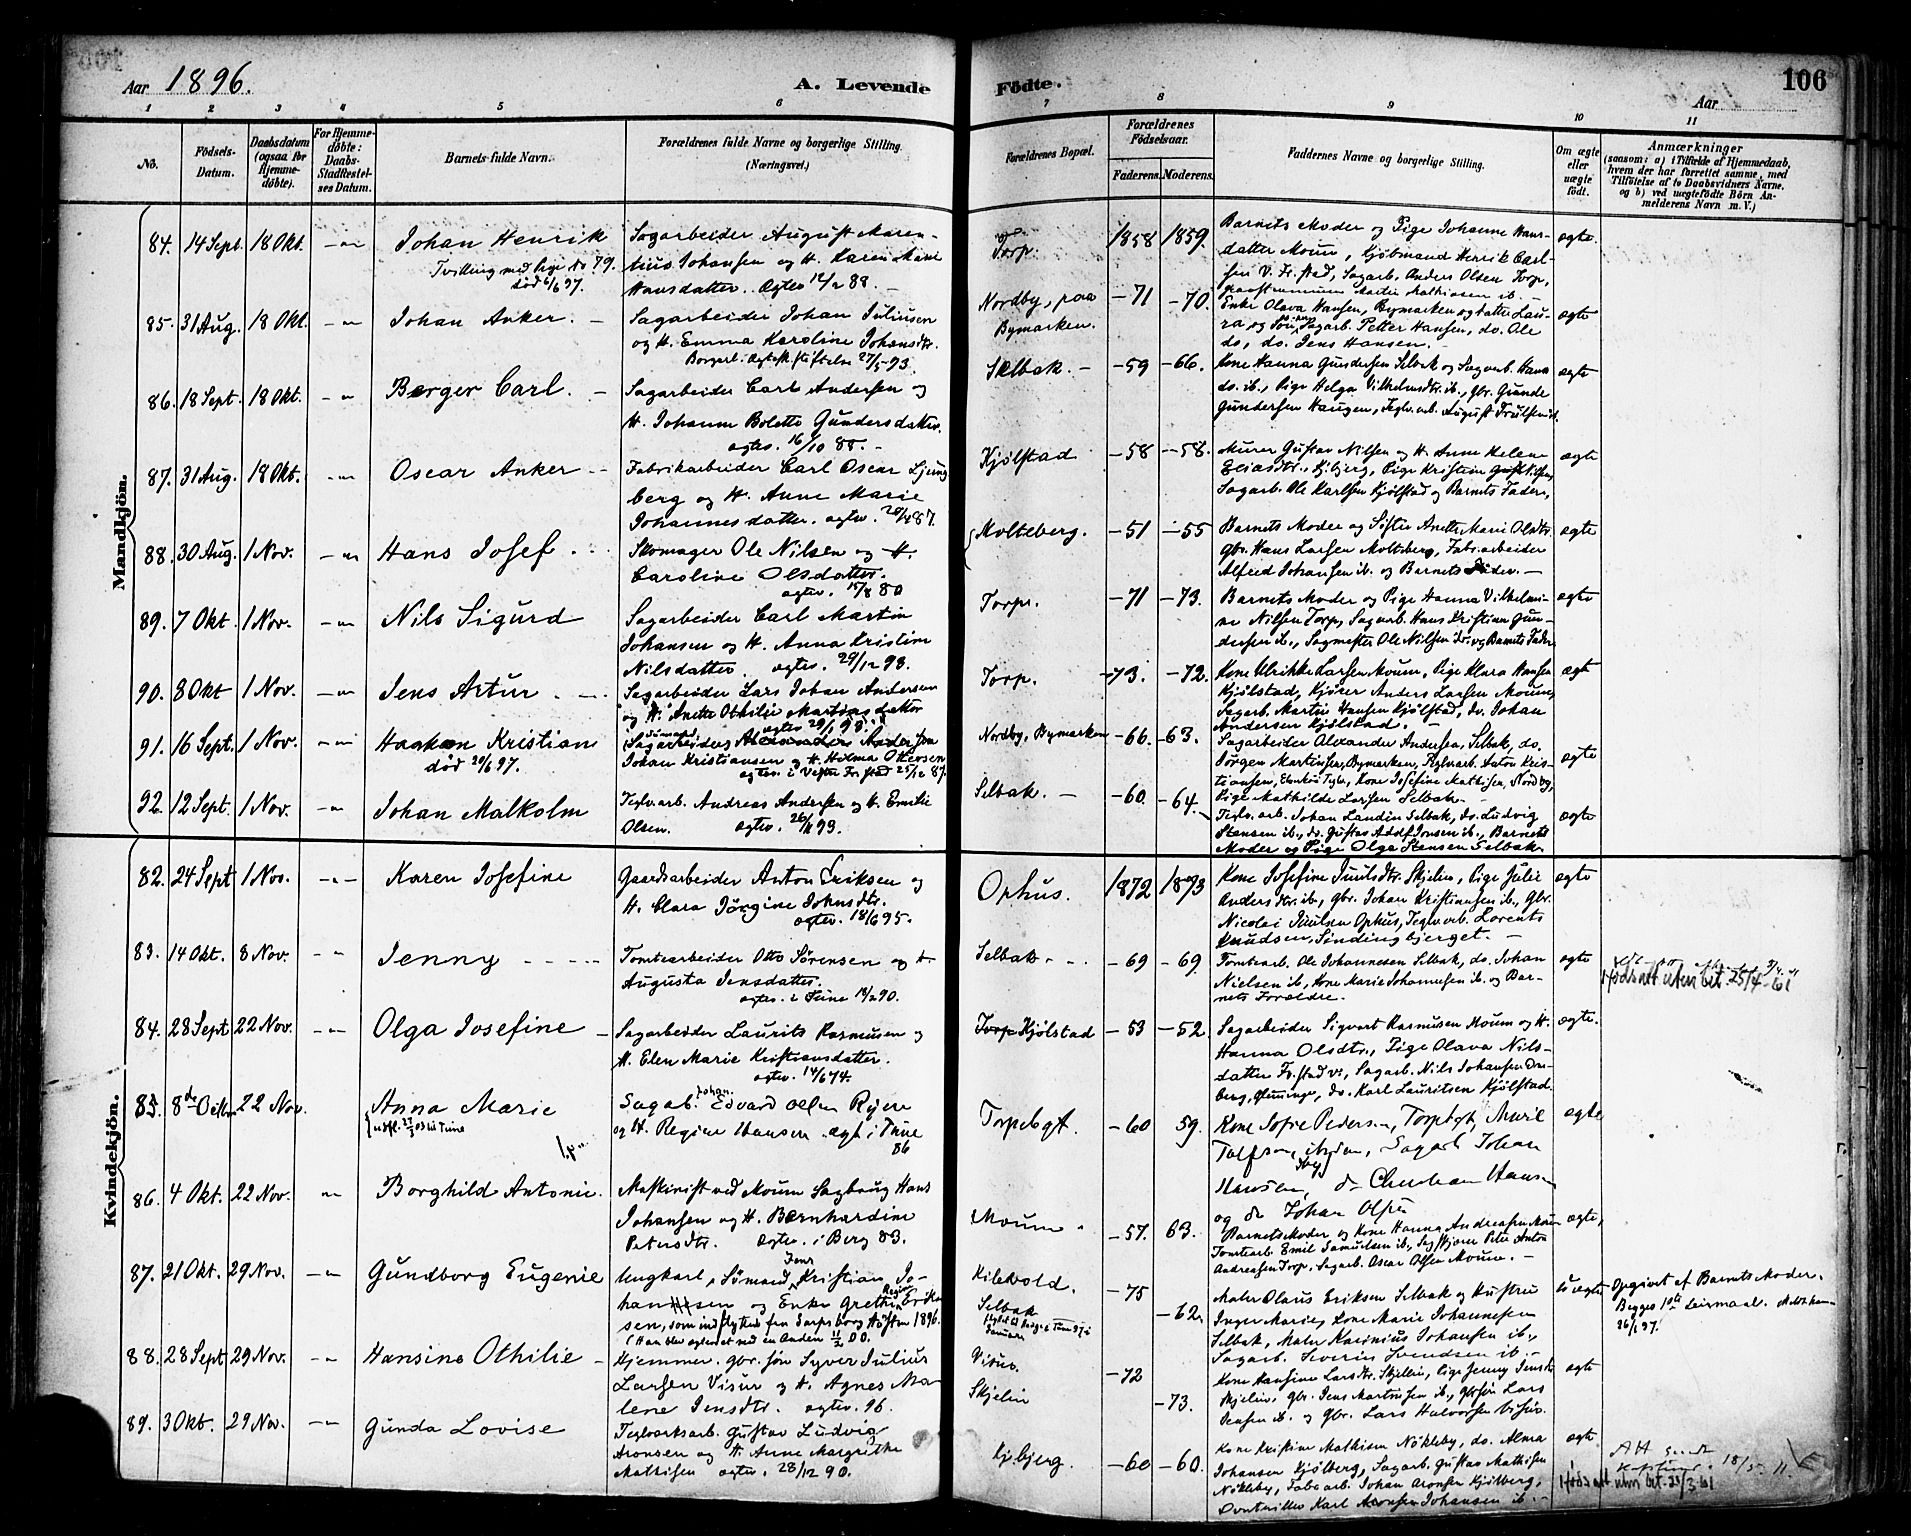 Aar 1896.
A. Levende
Fødte.
Aar
106
1 2 3 4 5 6 7 8 9 10 11
No.
Födsels-Datum.
Daabsdatum (ogsaa for Hjemme-döbte).
For Hjemme-döbte: Daabs-Stadfæstel-ses Datum.
Barnets fulde Navn.
Forældrenes fulde Navne og borgerlige Stilling. (Næringsvei.)
Forældrenes Bopæl.
Forældrenes Födselsaar.
Faderens. Moderens.
Faddernes Navne og borgerlige Stilling.
Om ægte eller uægte födt.
Anmærkninger
(saasom: a) i Tilfælde af Hjemmedaab, hvem der har forrettet samme, med Tilföielse af to Daabsvidners Navne, og b) ved uægtefödte Börn An-melderens Navn m. V.)
Mandkjön.
84. 14 Sept. 18 Okt. Johan Henrik
Tvilling med pige No 79.
død 6/6 97.
Sagarbeider August Maren-
tius Johansen og H. Karen Marie
Hansdatter.
Torp. 1858 1859.
Barnets Moder og Pige Johanne Hans-
datter Moum, Kjøbmand Henrik Carl-
sen V. Fr.stad, Sagarb. Anders Olsen Torp,
ægte.
85. 31 Aug. 18 Okt. Johan Anker.
Sagarbeider Johan Juliusen
og H. Emma Karoline Johansdtr.
Borgerl. Ægteskabsstiftelse 27/5 93.
Nordby, paa
Bymarken.
-71 -70.
Enke Olava Hansen, Bymarken og datter Lau-
ra og Søn, Sagarb. Petter Hansen, do. Ole
do, do. Jens Hansen.
ægte
86. 18 Sept. 18 Okt. Børger Carl.
Sagarbeider Carl Andersen og
H. Johanne Bolette Gundersdatter.
Selbak. -59 -66.
Kone Hanna Gundersen Selbak og Sagarb. Hans
do. ib., Pige Helga Vilhelmsdtr. ib., Gbr. Gunde
Gundersen Haugen, Teglv.arb. August Trulsen ib.
ægte
87. 31 Aug. 18 Okt. Oscar Anker
Fabrikarbeider Carl Oscar Ljung
berg og H. Anne Marie
Johannesdatter.
Kjølstad -58 -58.
Murer Gustav Nilsen og H. Anne Helene
Eliasdtr., Kjølberg, Pige Kristine Nilsen,
Sagarb. Ole Karlsen Kjølstad og Barnets Fader.
ægte
88. 30 Aug. 1 Nov. Hans Josef.
Skomager Ole Nilsen og H.
Caroline Olsdatter.
ægtev. 15/8 80
Molteberg. -51 -55
Barnets Moder og Søster Anette Marie Olsdtr.
Gbr. Hans Larsen Molteberg, Fabr.arbeider
Alfred Johansen ib. og Barnets Fader.
ægte
89. 7 Okt. 1 Nov. Nils Sigurd
Sagarbeider Carl Martin
Johansen og H. Anna Kristine
Nilsdatter.
Torp. -71 -73.
Barnets Moder og Pige Hanna Vilhelmi-
ne Nilsen Torp, Sagarb. Hans Kristian Gun-
dersen ib., Sagmester Ole Nilsen ib. og Barnets Fader
ægte
90. 8 Okt 1 Nov. Jens Artur
Sagarbeider Lars Johan Andersen
og H. Anette Othilie Martinsdatter
Torp. -73. -72.
Kone Ulrikke Larsen Moum, Pige Klara Hansen
Kjølstad, Kjører Anders Larsen Moum,
Sagarb. Martin Hansen Kjølstad, do. Johan
Andersen Kjølstad.
ægt
91. 16 Sept. 1 Nov. Haakon Kristian
død 20/6 97.
Sagarbeider Alexander Andersen
Johan Kristiansen og H. Hilma Othersen
ægtev. i Vestre Fr.stad 25/12 87.
Nordby, Bymarken -66. -63.
Sagarbeider Alexander Andersen, Selbak, do.
Jørgen Martinsen, Bymarken, Teglv.arb. Anton Kris-
tiansen, Kone Josefine Mathisen, Nordby,
Pige Mathilde Larsen Selbak.
ægte
92. 12 Sept. 1 Nov. Johan Malkolm
Teglv.arb. Andreas Andersen og H. Emilie
Olsen.
Selbak. -60. -64.
Teglv.arb. Johan Landin Selbak, do. Ludvig
Stensen ib., do. Gustav Adolf Jonsen ib., Barnets
Moder og Pige Olga Stensen Selbak.
ægte
Kvindekjön.
82. 24 Sept 1 Nov. Karen Josefine
Gaardsarbeider Anton Eriksen og
H. Clara Jørgine Johnsdtr.
ægtev. 18/6 95.
Ophus. 1872 1873
Kone Josefine Juulsdtr. Skjelin, Pige Julie
Andersdtr. ib., Gbr. Johan Kristiansen ib., Gbr.
Nicolai Juulsen Ophus, Teglv.arb. Lorents
Knudsen, Sindingbjerget.
ægte
83. 14 Okt. 8 Nov. Jenny
Tomtearbeider Otto Sørensen og H.
Augusta Jensdatter.
ægtev. i Tune 18/2 90.
Selbak. -69 -69.
Tomtearb. Ole Johannesen Selbak, do. Johan
Nielsen ib., Kone Marie Johannesen ib. og Bar-
nets Forældre.
ægte
Fødsatt uten bet. 25/4-61
84. 28 Sept 22 Nov. Olga Josefine
Sagarbeider Laurits Rasmusen og
H. Elen Marie Kristiansdatter.
ægtev. 14/6 74.
Torp Kjølstad -53 -52.
Sagarbeider Sigvart Rasmusen Moum og H.
Hanna Olsdtr., Pige Olava Nils-
datter Fr.stad V., Sagarb. Nils Johansen
Glemminge, do. Karl Lauritsen Kjølstad.
ægte.
85. 8de Octbr 22 Nov. Anna Marie
Sagab. Johan Edvard Olsen Ryere
og H. Regine Hansen ægt. i Tune
86
Torpebgt. -60 59.
Kone Sofie Pedersen, Torpebgt, Marie
Tolfsen, Sagarb Johan
Hansen, do Christian Hansen
og do Johan Olsen
ægte
86. 4 Okt. 22 Nov. Borghild Antonie.
Maskinist ved Moum Sagbrug Hans
Johansen og H. Bernhardine
Petersdtr. ægtev. i Berg 83.
Moum. -57. 63.
Barnets Moder og Kone Hanna Andreasen Moum
Tomtearb Emil Samuelsen ib., Sagskjærer Peter Anton
Andreasen Torp, Sagarb. Oscar Olsen Moum.
ægte,
87. 21 Okt. 29 Nov. Gundborg Eugenie
Ungkarl, Sømand Jens Kristian Jo-
hannesen og Enke Grethe Regine Erik-
sen, som indflyttede fra Sarpsborg Høsten 1896.
(Han blev ægteviet ved en Anden 11/2 00.
Kilevold.
Selbak
-75 -62.
Maler Olaus Eriksen Selbak og Hustru
Inger Marie, Kone Marie Johannesen
Selbak, Maler Karinius Johansen ib.,
Sagarb. Severin Svendsen ib.
Uægte
Opgivet af Barnets Moder.
Begges 1ste Leiermaal.
26/1 97.
88. 28 Sept. 29 Nov. Hansine Othilie
Hjemmev. Gbr. søn Syver Julius
Larsen Visur og H. Agnes Ma-
lene Jensdtr. ægtev. 96.
Visur.
Skjelin
-72 -73.
Kone Hansine Larsdtr. Skjelin, Pige Jenny Jensdtr
Skjelin, Gbr. Jens Martinsen ib., Gbrsøn Lars
Jensen ib. og Gbr. Lars Halvorsen Visur.
ægte
89. 3 Okt. 29 Nov. Gunda Lovise
Teglværksarb. Gustav Ludvig
Aronsen og H. Anne Margrethe
Mathisen ægtev. 28/12 90.
Kjølberg. -60 -60.
Kone Kristine Mathisen Nøkleby, do. Alma
Johansen Kjølberg, Sagarb. Gustav Mathisen
Nøkleby, Fabr.arb. Johan Aronsen Kjølberg,
Karl Aronsen Johansen ib.
ægte
Fødsatt uten bet. 21/3 61